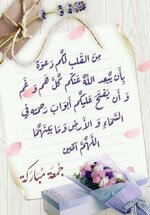 مِن القَلب لكُم دَعوَة
بِأن يُبعِد اللهُ عَنكُم كُلّ هَم و غَم
وَ أن يَفتَح عَليكُم أبوَاب رَحمَته في
السَّمَاءِ وَ الأرضِ وَمَا بَينَهُمَا
اللَّهُمَّ آمين
جُمعَة مُبَارَكَة